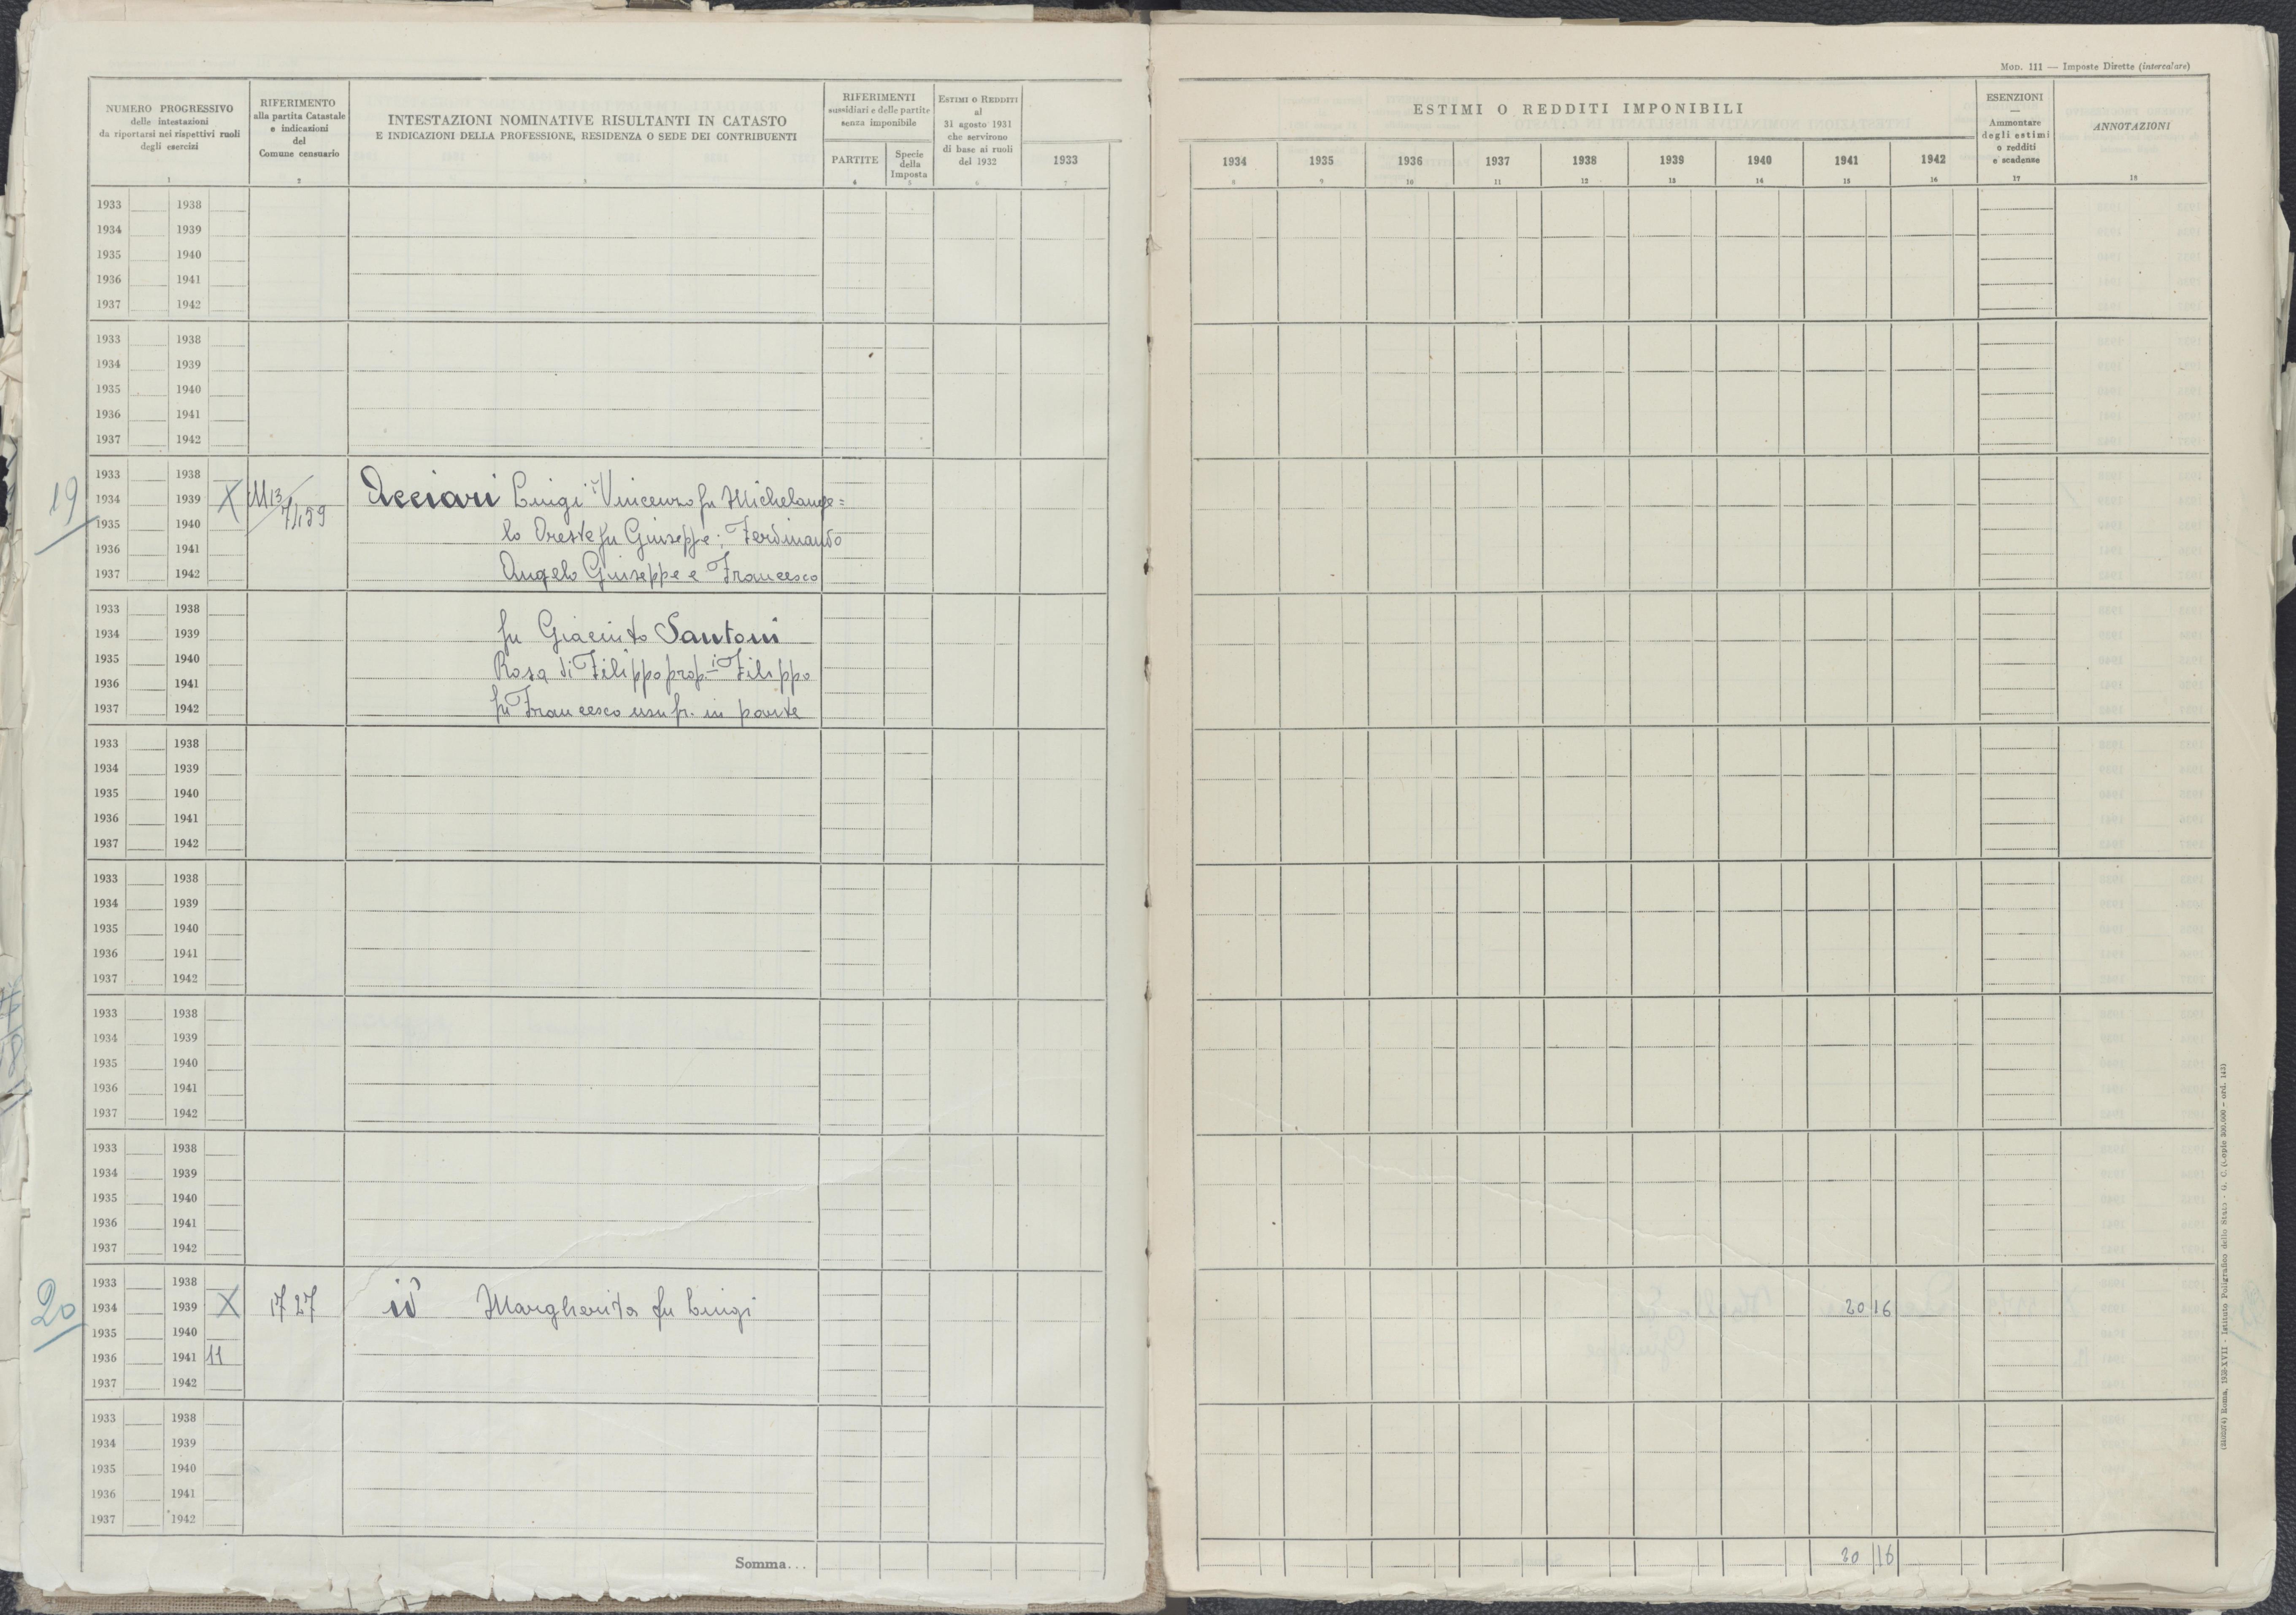 Mod. 111 — Imposte Dirette (intercalare)
NUMERO PROGRESSIVO
delle intestazioni
da riportarsi nei rispettivi ruoli
degli esercizi
1
RIFERIMENTO
alla partita Catastale
e indicazioni
del
Comune censuario
2
INTESTAZIONI NOMINATIVE RISULTANTI IN CATASTO
E INDICAZIONI DELLA PROFESSIONE, RESIDENZA O SEDE DEI CONTRIBUENTI
3
RIFERIMENTI
sussidiari e delle partite
senza imponibile
PARTITE
4
Specie
della
Imposta
5
Estimi o Redditi
al
31 agosto 1931
che servirono
di base ai ruoli
del 1932
6
1933
7
ESTIMI O REDDITI IMPONIBILI
1934 1935 1936 1937 1938 1939 1940 1941 1942
8 9 10 11 12 13 14 15 16
ESENZIONI
—
Ammontare
degli estimi
o redditi
e scadenze
17
ANNOTAZIONI
18
1933 1938
1934 1939
1935 1940
1936 1941
1937 1942
1933 1938
1934 1939
1935 1940
1936 1941
1937 1942
19
1933 1938
1934 1939 X Acciari Luigi i Vincenzo fu Michelange=
1935 1940 lo Oreste fu Giuseppe; Ferdinando
1936 1941
1937 1942 Angelo Giuseppe e Francesco
1933 1938
1934 1939 fu Giacinto Santoni
1935 1940 Rosa di Filippo prop. i Filippo
1936 1941
1937 1942 fu Francesco usufr. in parte
1933 1938
1934 1939
1935 1940
1936 1941
1937 1942
1933 1938
1934 1939
1935 1940
1936 1941
1937 1942
1933 1938
1934 1939
1935 1940
1936 1941
1937 1942
1933 1938
1934 1939
1935 1940
1936 1941
1937 1942
20
1933 1938
1934 1939 X 1727 Margherita fu Luigi 20 16
1935 1940
1936 1941 11
1937 1942
1933 1938
1934 1939
1935 1940
1936 1941
1937 1942
Somma... 20 16
Roma, 1938-XVII - Istituto Poligrafico dello Stato - G. C. (Copie 300,000 - ord. 143)